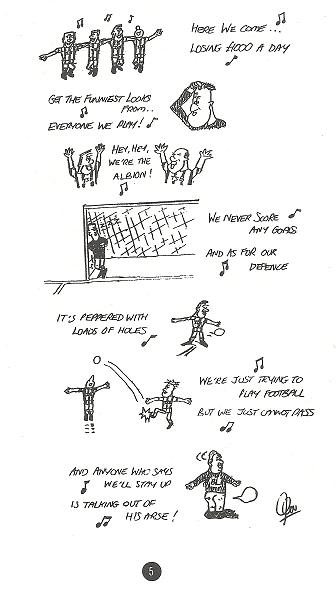 HERE WE COME...
LOSING £1000 A DAY
GET THE FUNNIEST LOOKS
FROM..
EVERYONE WE PLAY!
HEY, HEY,
WE'RE THE
ALBION!
WE NEVER SCORE
ANY GOALS
AND AS FOR OUR
DEFENCE
IT'S PEPPERED WITH
LOADS OF HOLES
WE'RE JUST TRYING TO
PLAY FOOTBALL
BUT WE JUST CANNOT PASS
AND ANYONE WHO SAYS
WE'LL STAY UP
IS TALKING OUT OF
HIS ARSE!
5